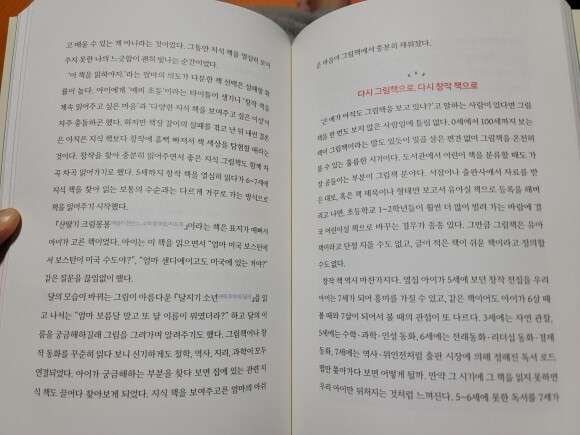 고 배울 수 있는 게 아니라는 것이었다. 그동안 지식 책을 열심히 보여
주지 못한 나의 느긋함이 괜히 빛나는 순간이었다.
'이 책을 읽혀야지.'라는 엄마의 의도가 다분한 책 선택은 실패할 확
률이 높다. 아이에게 '예비 초등'이라는 타이틀이 생기니 '창작 책을
계속 읽어주고 싶은 마음'과 '다양한 지식 책을 보여주고 싶은 이상'이
자주 충돌하곤 했다. 하지만 책장 같이의 실패를 겪고 난 뒤 내린 결론
은 아직은 지식 책보다 창작에 흠뻑 빠져서 책 세상을 탐험할 때라는
것이었다. 창작을 많이 충분히 읽어주면서 좋은 지식 그림책도 함께 차
곡차곡 읽어주기로 했다. 5세까지 창작 책을 열심히 읽다가 6~7세에
지식 책을 찾아 읽는 보통의 수순과는 다르게 거꾸로 가는 방식으로
책을 읽어주기 시작했다.
『산딸기 크림봉봉』이라는 책은 표지가 예뻐서
아이가 고른 책이었다. 아이는 이 책을 읽으면서 "엄마 미국 보스턴에
서 보스턴이 미국 수도야?", "엄마 샌디에이고도 미국에 있는 거야?"
같은 질문을 끊임없이 했다.
달의 모습이 바뀌는 그림이 아름다운 『달지기 소년』을 읽
고 나서는 "엄마! 보름달 말고 또 달 이름이 뭐였더라?" 하고 달의 이
름을 궁금해하길래 그림을 그려가며 알려주기도 했다. 그림책이나 창
작 동화를 꾸준히 읽다 보니 신기하게도 철학, 역사, 지리, 과학이 모두
연결되었다. 아이가 궁금해하는 부분을 찾다 보면 집에 있는 관련 지
식 책도 끌어다 찾아보게 되었다. 지식 책을 보여주고픈 엄마의 아쉬
운 마음이 그림책에서 충분히 채워졌다.
다시 그림책으로, 다시 창작 책으로
'큰 애가 아직도 그림책을 보고 있나?'고 말하는 사람이 있다면 그림
책을 한 번도 보지 않은 사람임에 틀림 없다. 0세에서 100세까지 보는
책이 그림책이라는 말도 있듯이 일곱 살은 편견 없이 그림책을 온전히
볼 수 있는 훌륭한 시기이다. 도서관에서 어린이 책을 분류할 때도 가
장 공들이는 부분이 그림책 분야다. 서점이나 출판사에서 자료를 받
은 대로, 혹은 책 제목이나 형태만 보고서 유아실 책으로 등록을 해버
리고 나면, 초등학교 1~2학년들이 훨씬 더 많이 빌려 가는 바람에 결
국 어린이실 책으로 바꾸는 경우가 종종 있다. 그만큼 그림책은 유아
책이라고 단정 지을 수도 없고, 글이 적은 책이 쉬운 책이라고 정의할
수도 없다.
창작 책 역시 마찬가지다. 옆집 아이가 5세에 보던 창작 전집을 우리
아이는 7세가 되어 흥미를 가질 수 있고, 같은 책이어도 아이가 6살 때
볼 때와 7살이 되어서 볼 때의 관점이 또 다르다. 3세에는 자연 관찰,
5세에는 수학·과학·인성 동화, 6세에는 전래동화·리더십 동화·경제
동화, 7세에는 역사·위인전처럼 출판 시장에 의해 정해진 독서 로드
맵만 쫓아가다 보면 어떻게 될까. 만약 그 시기에 그 책을 읽지 못하면
우리 아이만 뒤처지는 것처럼 느껴진다. 5~6세에 못한 독서를 7세가